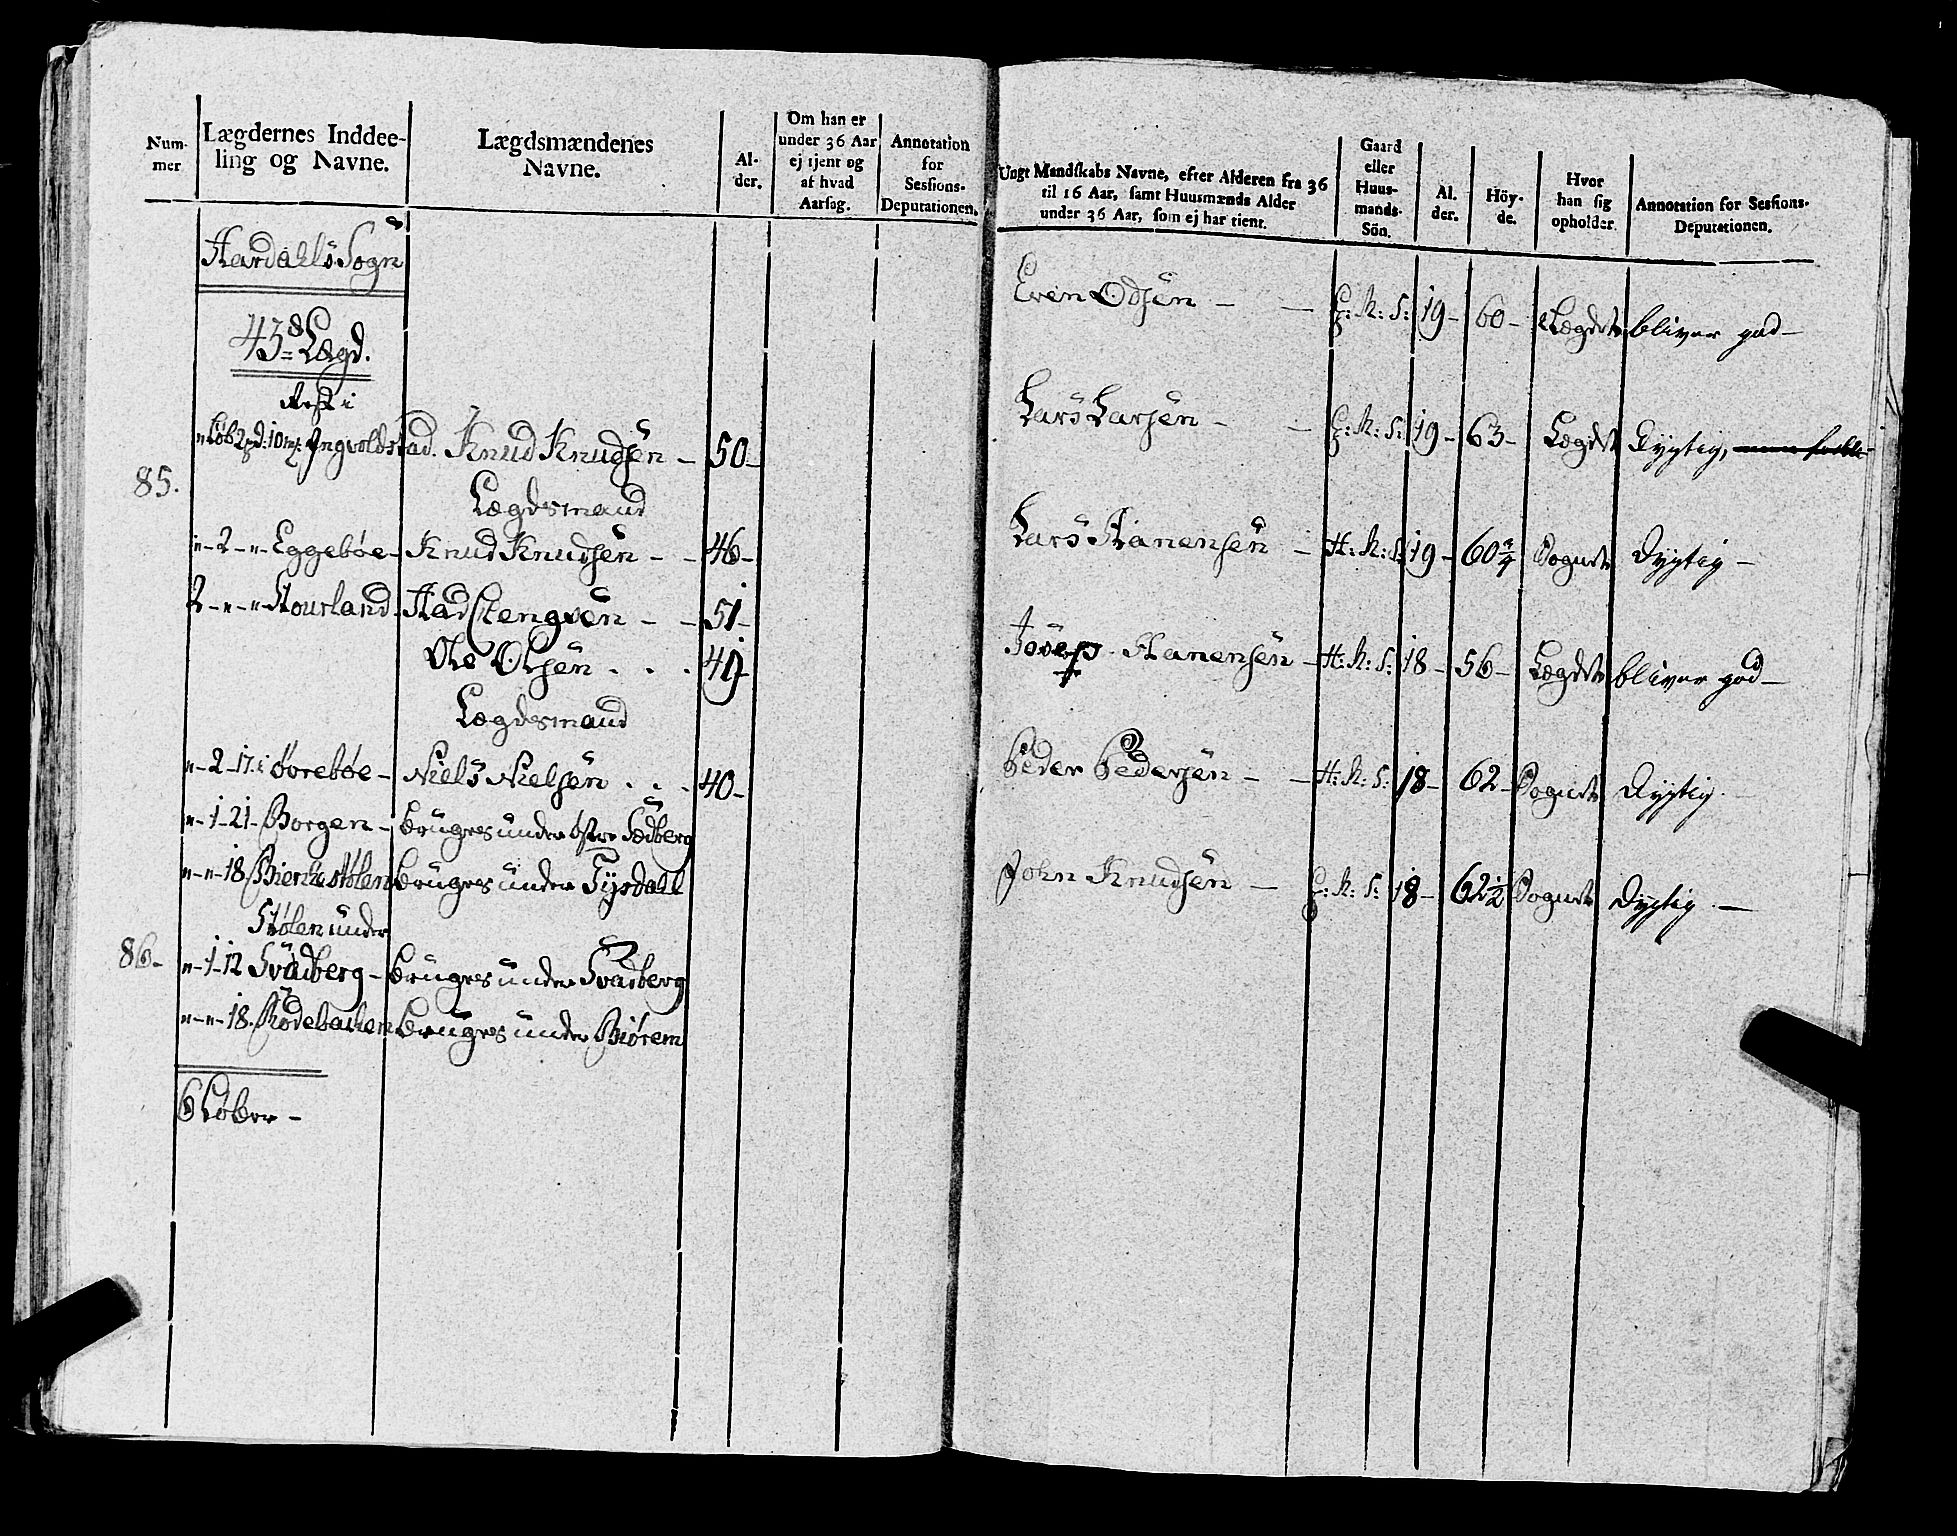 Num-
mer
Lægdernes Inddee-
ling og Navne.
Lægdsmændenes
Navne.
Al-
der.
Om han er
under 36 Aar
ej tjent og
af hvad
Aarsag.
Annotation
for
Sessions-
Deputationen.
Aardahls Sogn
43de Lægd.
Rest i
"Løb 2pd: 10 mk: Ingvoldstad. Knud Knudsen – 50 –
85.
Lægdsmand
"– 2 – "– Eggebøe – Knud Knudsen – – 46 –
2 – " – " Hourland – Aad Stengrøn – – 51 –
Ole Olsen . . . 49
Lægdsmand
" – 2 – 17: i Øvrebøe – Niels Nielsen . . . 40 –
" – 1 – 21 – Borgen – bruges under østre Sædberg
" – " – 18. Bierkestølen bruges under Tysdahl
Stølen under
86 – " – 1 – 12 Svadberg – bruges under Svadberg
" – " – 18. Rødebacken bruges under Biørem
6 Løber –
Ungt Mandskabs Navne, efter Alderen fra 36
til 16 Aar, samt Huusmænds Alder
under 36 Aar, som ej har tient.
Gaard
eller
Huus-
mands-
Sön.
Al.
der.
Höy-
de.
Hvor
han sig
opholder.
Annotation for Sessions-
Deputationen.
Even Odsen – – G: M: S: 19 – 60 – Lægdet bliver god –
Lars Larsen – – G: M: S: 19 – 63 – Lægdet Dygtig,
Lars Hanensen – H: M: S: 19 – 60 3/4 Sognet Dygtig –
Josep Hanensen – H: M: S: 18 – 56 – Lægdet bliver god –
Peder Pedersen – – H: M: S: 18 – 62 – Sognet Dygtig. –
John Knudsen – G: M: S: 18 – 62 1/2 Sognet Dygtig. –